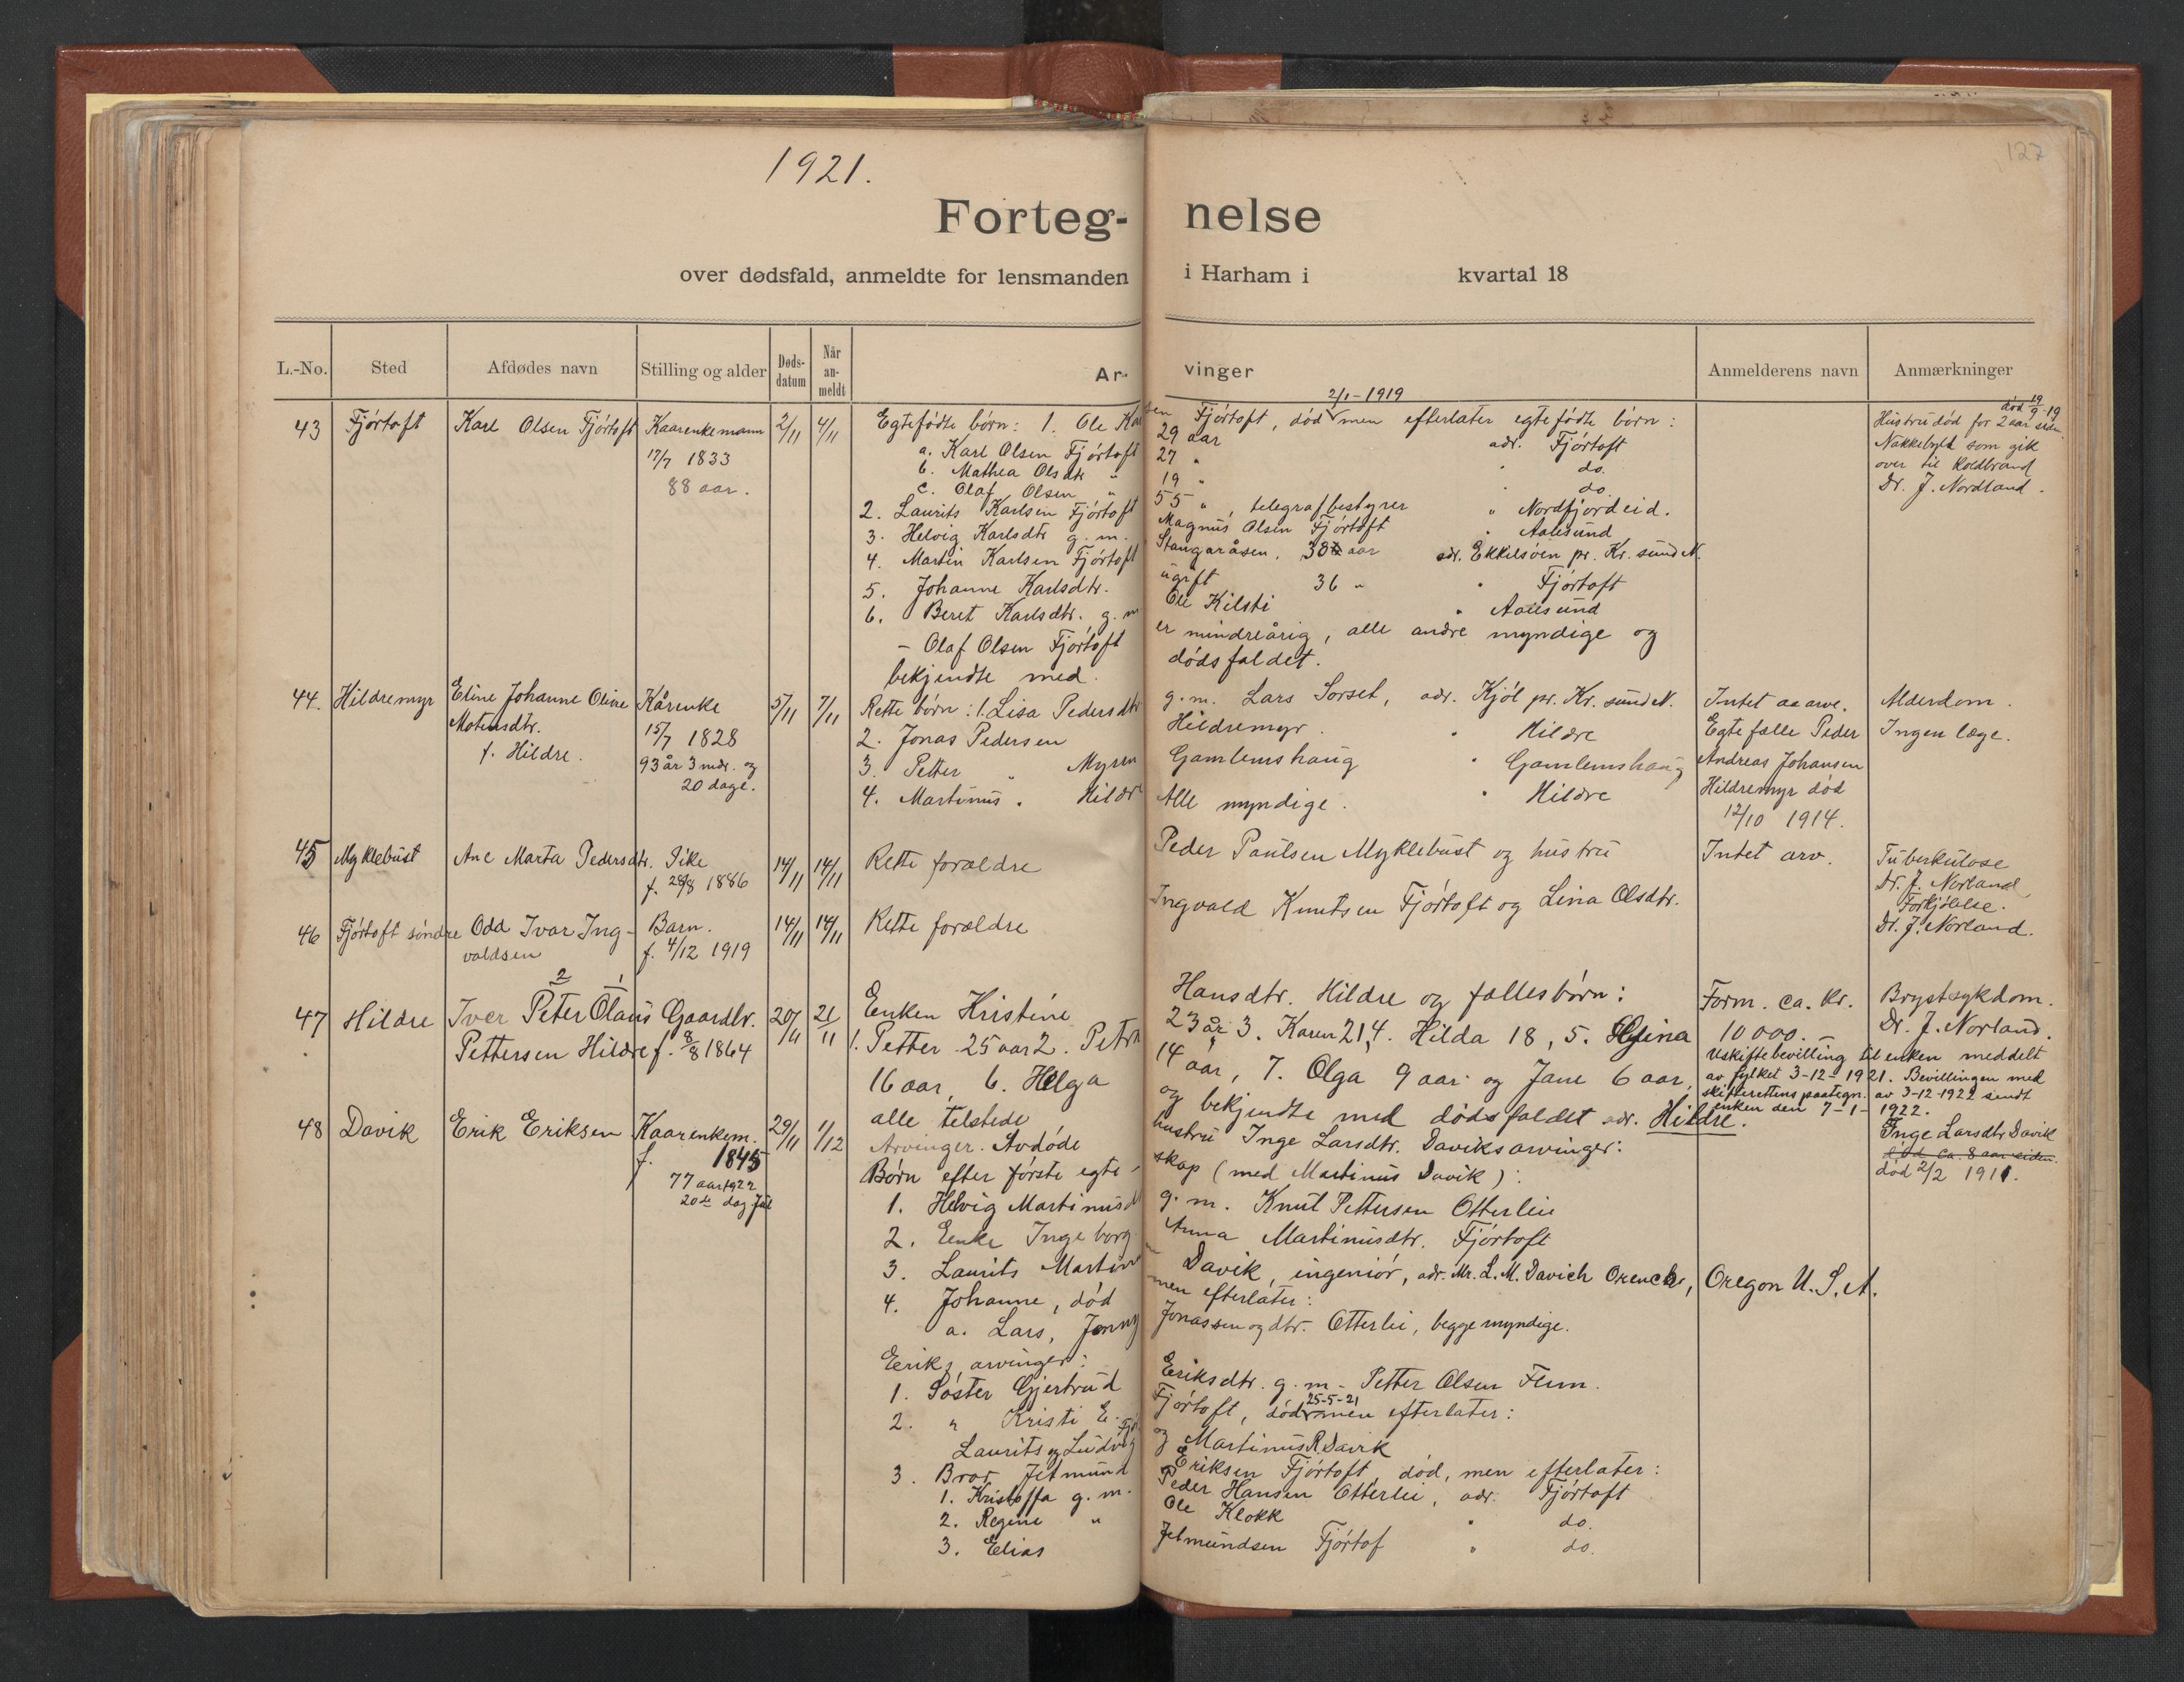 1921.
127
Forteg- nelse
over dødsfald, anmeldte for lensmanden i Harham i kvartal 18
L.-No. Sted Afdødes navn Stilling og alder Døds-datum Når an-meldt Ar- vinger Anmelderens navn Anmærkninger
43 Fjörtoft Karl Olsen Fjörtoft Kaarenkemann 2/11 4/11 Egtefödte börn: 1. Ole Karlsen Fjörtoft, död 2/1-1919 men efterlater egtefödte börn:
17/7 1833
88 aar.
a. Karl Olsen Fjörtoft 29 aar adr. Fjörtoft
b. Mathea Olsdtr " 27 " " do.
c. Olaf Olsen " 19 " " do.
2. Laurits Karlsen Fjörtoft 55 ", telegrafbestyrer " Nordfjordeid.
3. Helvig Karlsdtr g. m. Magnus Olsen Fjörtoft " Aalesund
4. Martin Karlsen Fjörtoft Stangaråsen, 38 aar adr. Ekkilsöen pr. Kr. sund N.
5. Johanne Karlsdtr. ugift 36 " " Fjörtoft
6. Beret Karlsdtr. g. m Ole Kilsti " Aalesund
- Olaf Olsen Fjörtoft er mindreårig, alle andre myndige og
bekjendte med dödsfaldet.
död 19/9-19
Hustru död for 2 aar siden
Nakkebyld som gik
over til Koldbrand
Dr. J. Nordland.
44. Hildremyr Eline Johanne Oline Kårenke 5/11 7/11 Rette börn: 1. Lisa Pedersdtr g. m. Lars Sorset, adr. Kjöl pr. Kr. sund N. Intet aa arve. Alderdom.
Motensdtr. 15/7 1828 2. Jonas Pedersen Hildremyr " Hildre Egtefælle Peder Ingen læge.
f. Hildre. 93 år 3 mdr. og 3. Petter " Myren Gamlemshaug " Gamlemshaug Andreas Johansen
20 dage. 4. Martinus " Hildre Alle myndige. " Hildre Hildremyr död
12/10 1914.
45 Myklebust Ane Marta Pedersdtr. Pike 14/11 14/11 Rette forældre Peder Paulsen Myklebust og hustru Intet arv. Tuberkulose
f. 28/8 1886 Dr. J. Norland
46 Fjörtoft söndre Odd Ivar Ing- Barn. 14/11 14/11 Rette forældre Ingvald Knutsen Fjörtoft og Lina Olsdtr. Forkjölelse.
valdsen f. 4/12 1919 Dr. J. Norland.
2 1
47 Hildre Iver Peter Olaus Gaardbr. 20/11 21/11 Enken Kristine Hansdtr. Hildre og fællesbörn: Form. ca. kr. Brystsykdom.
Pettersen Hildre f. 8/8 1864 1. Petter 25 aar 2. Petra 23 år 3. Karen 21, 4. Hilda 18, 5. 10 000.- Dr. J. Norland.
16 aar, 6. Helga 14 aar, 7. Olga 9 aar og Jane 6 aar,
alle telstede og bekjendte med dödsfaldet adr. Hildre.
Uskiftebevilling til enken meddelt
av fylket 3-12-1921. Bevillingen med
skifterettens paategn. av 3-12-1922 sendt
enken den 7-1-1922.
48 Davik Erik Eriksen Kaarenkem. 29/11 1/12 Arvinger. Avdöde hustru Inge Larsdtr. Daviks arvinger: Inge Larsdtr Davik
f. 1845 Börn efter förste egteskap (med Martinus Davik): död ca. 8 aar siden.
77 aar 1922 död 2/2 1911.
20de dag Jul
1. Helvig Martinusd g. m. Knut Pettersen Otterlei
2. Enke Ingeborg Anna Martinusdtr. Fjörtoft
3. Laurits Martin Davik, ingeniör, adr. Mr. L. M. Davich Orencke, Oregon U. S. A.
4. Johanne, död men efterlater:
a. Lars, Jenny Jonassen og dtr. Otterlei, begge myndige.
Eriks arvinger:
1. Söster Gjertrud Eriksdtr. g. m. Petter Olsen Flem.
2. " Kristi E. Fjörtoft, död 25-5-21 men efterlater:
Laurits og Ludvig og Martinus R. Davik
3. Bror Jetmund Eriksen Fjörtoft, död, men efterlater:
1. Kristoffa g. m. Peder Hansen Otterlei, adr. Fjörtoft
2. Regine " Ole Klokk " do.
3. Elias Jetmundsen Fjörtof " do.